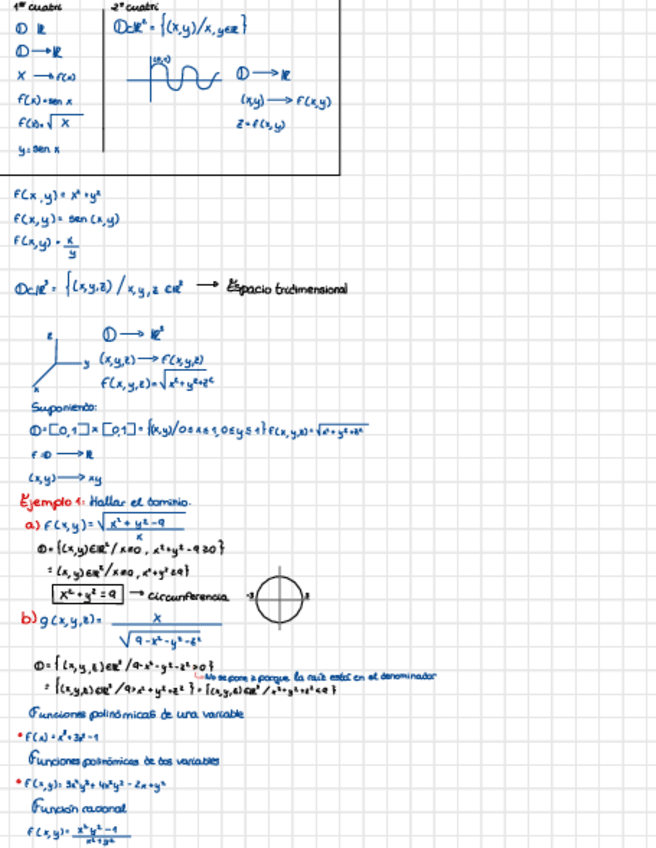 1er cuatri
D ℝ
D → ℝ
x → f(x)
f(x) = sen x
f(x) = √x
y = sen x
2º cuatri
D⊂ℝ² = {(x,y)/x,y∈ℝ}
D → ℝ
(x,y) → f(x,y)
z = f(x,y)
f(x,y) = x² + y²
f(x,y) = sen (x,y)
f(x,y) = x/y
D⊂ℝ³ = {(x,y,z) / x,y,z ∈ℝ³ → Espacio tridimensional
z
y
x
D → ℝ³
(x,y,z) → f(x,y,z)
f(x,y,z) = √x²+y²+z²
Suponiendo:
D = [0,1] x [0,1] = {(x,y)/0≤x≤1, 0≤y≤1} f(x,y,z) = √x²+y²+z²
f: D → ℝ
(x,y) → xy
Ejemplo 1: Hallar el dominio.
a) f(x,y) = √x² + y² - 9 / x
D = {(x,y)∈ℝ² / x≠0, x²+y²-9≥0}
= {(x,y)∈ℝ² / x≠0, x²+y²≥9}
x² + y² = 9 → circunferencia
-3 3
b) g(x,y,z) = x / √9-x²-y²-z²
D = {(x,y,z)∈ℝ³ / 9-x²-y²-z²>0}
No se pone ≥ porque la raíz está en el denominador
= {(x,y,z)∈ℝ³ / 9>x²+y²+z²} = {(x,y,z)∈ℝ³ / x²+y²+z²<9}
Funciones polinómicas de una variable
• f(x) = x³+3x²-1
Funciones polinómicas de dos variables
• f(x,y) = 3x²y³ + 4x²y² - 2x+y²
Función racional
f(x,y) = x²y²-1 / x²+y²